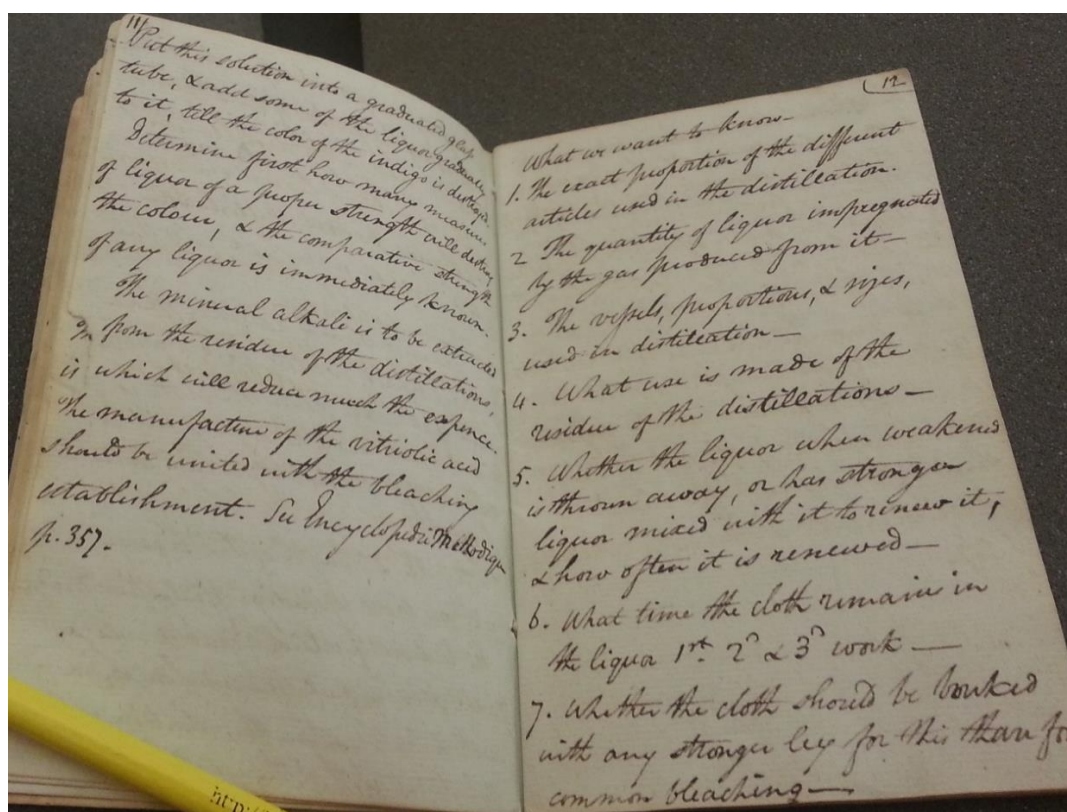 11
Put this solution into a graduated glass
tube, & add some of the liquor gradually
to it, till the color of the indigo is destroyed.
Determine first how many measures
of liquor of a proper strength will destroy
the colour, & the comparative strength
of any liquor is immediately known.
The mineral alkali is to be extracted
from the residue of the distillations,
which will reduce much the expence.
The manufacture of the vitriolic acid
should be united with the bleaching
establishment. See Encyclopedie Methodique
p. 357.
12
What we want to know—
1. The exact proportion of the different
articles used in the distillation.
2 The quantity of liquor impregnated
by the gas produced from it—
3. The vessels, proportions, & sizes,
used in distillation—
4. What use is made of the
residue of the distillations—
5. Whether the liquor when weakened
is thrown away, or has stronger
liquor mixed with it to renew it,
& how often it is renewed—
6. What time the cloth remains in
the liquor 1st. 2d & 3d work—
7. Whether the cloth should be bouked
with any stronger ley for this than for
common bleaching—
http://